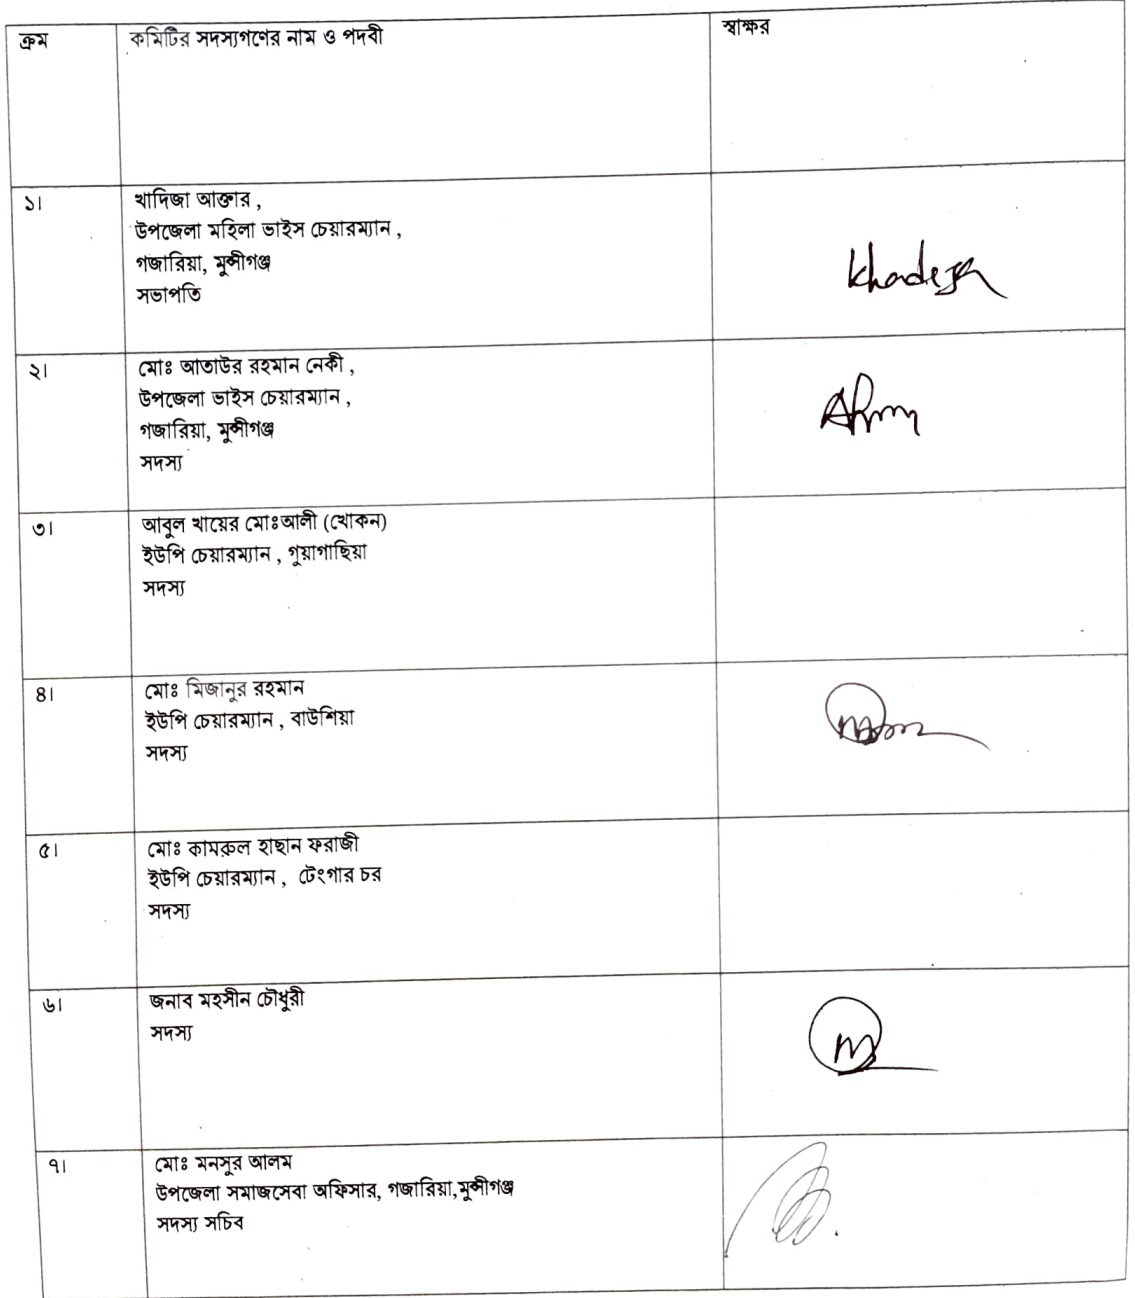 ক্রম কমিটির সদস্যগণের নাম ও পদবী স্বাক্ষর
১। খাদিজা আক্তার ,
উপজেলা মহিলা ভাইস চেয়ারম্যান ,
গজারিয়া, মুন্সীগঞ্জ
সভাপতি
Khadeja
২। মোঃ আতাউর রহমান নেকী ,
উপজেলা ভাইস চেয়ারম্যান ,
গজারিয়া, মুন্সীগঞ্জ
সদস্য
৩। আবুল খায়ের মোঃআলী (খোকন)
ইউপি চেয়ারম্যান , গুয়াগাছিয়া
সদস্য
৪। মোঃ মিজানুর রহমান
ইউপি চেয়ারম্যান , বাউশিয়া
সদস্য
৫। মোঃ কামরুল হাছান ফরাজী
ইউপি চেয়ারম্যান , টেংগার চর
সদস্য
৬। জনাব মহসীন চৌধুরী
সদস্য
৭। মোঃ মনসুর আলম
উপজেলা সমাজসেবা অফিসার, গজারিয়া,মুন্সীগঞ্জ
সদস্য সচিব